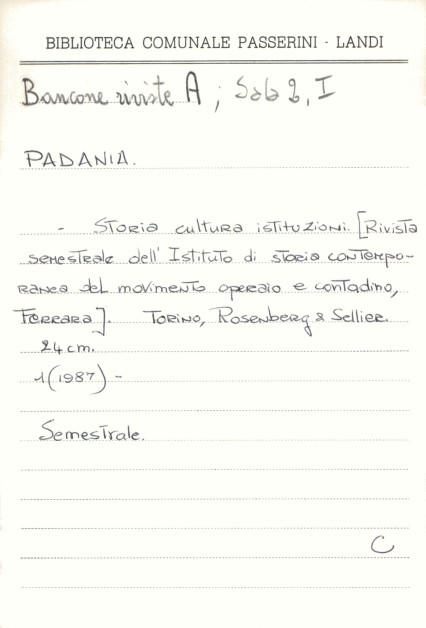 BIBLIOTECA COMUNALE PASSERINI - LANDI
Bancone riviste A ; Sab 2, I
PADANIA.
- Storia cultura istituzioni. [Rivista
semestrale dell' Istituto di storia contempo-
ranea del movimento operaio e contadino,
Ferrara]. Torino, Rosenberg & Sellier.
24 cm.
1(1987) -
Semestrale.
C